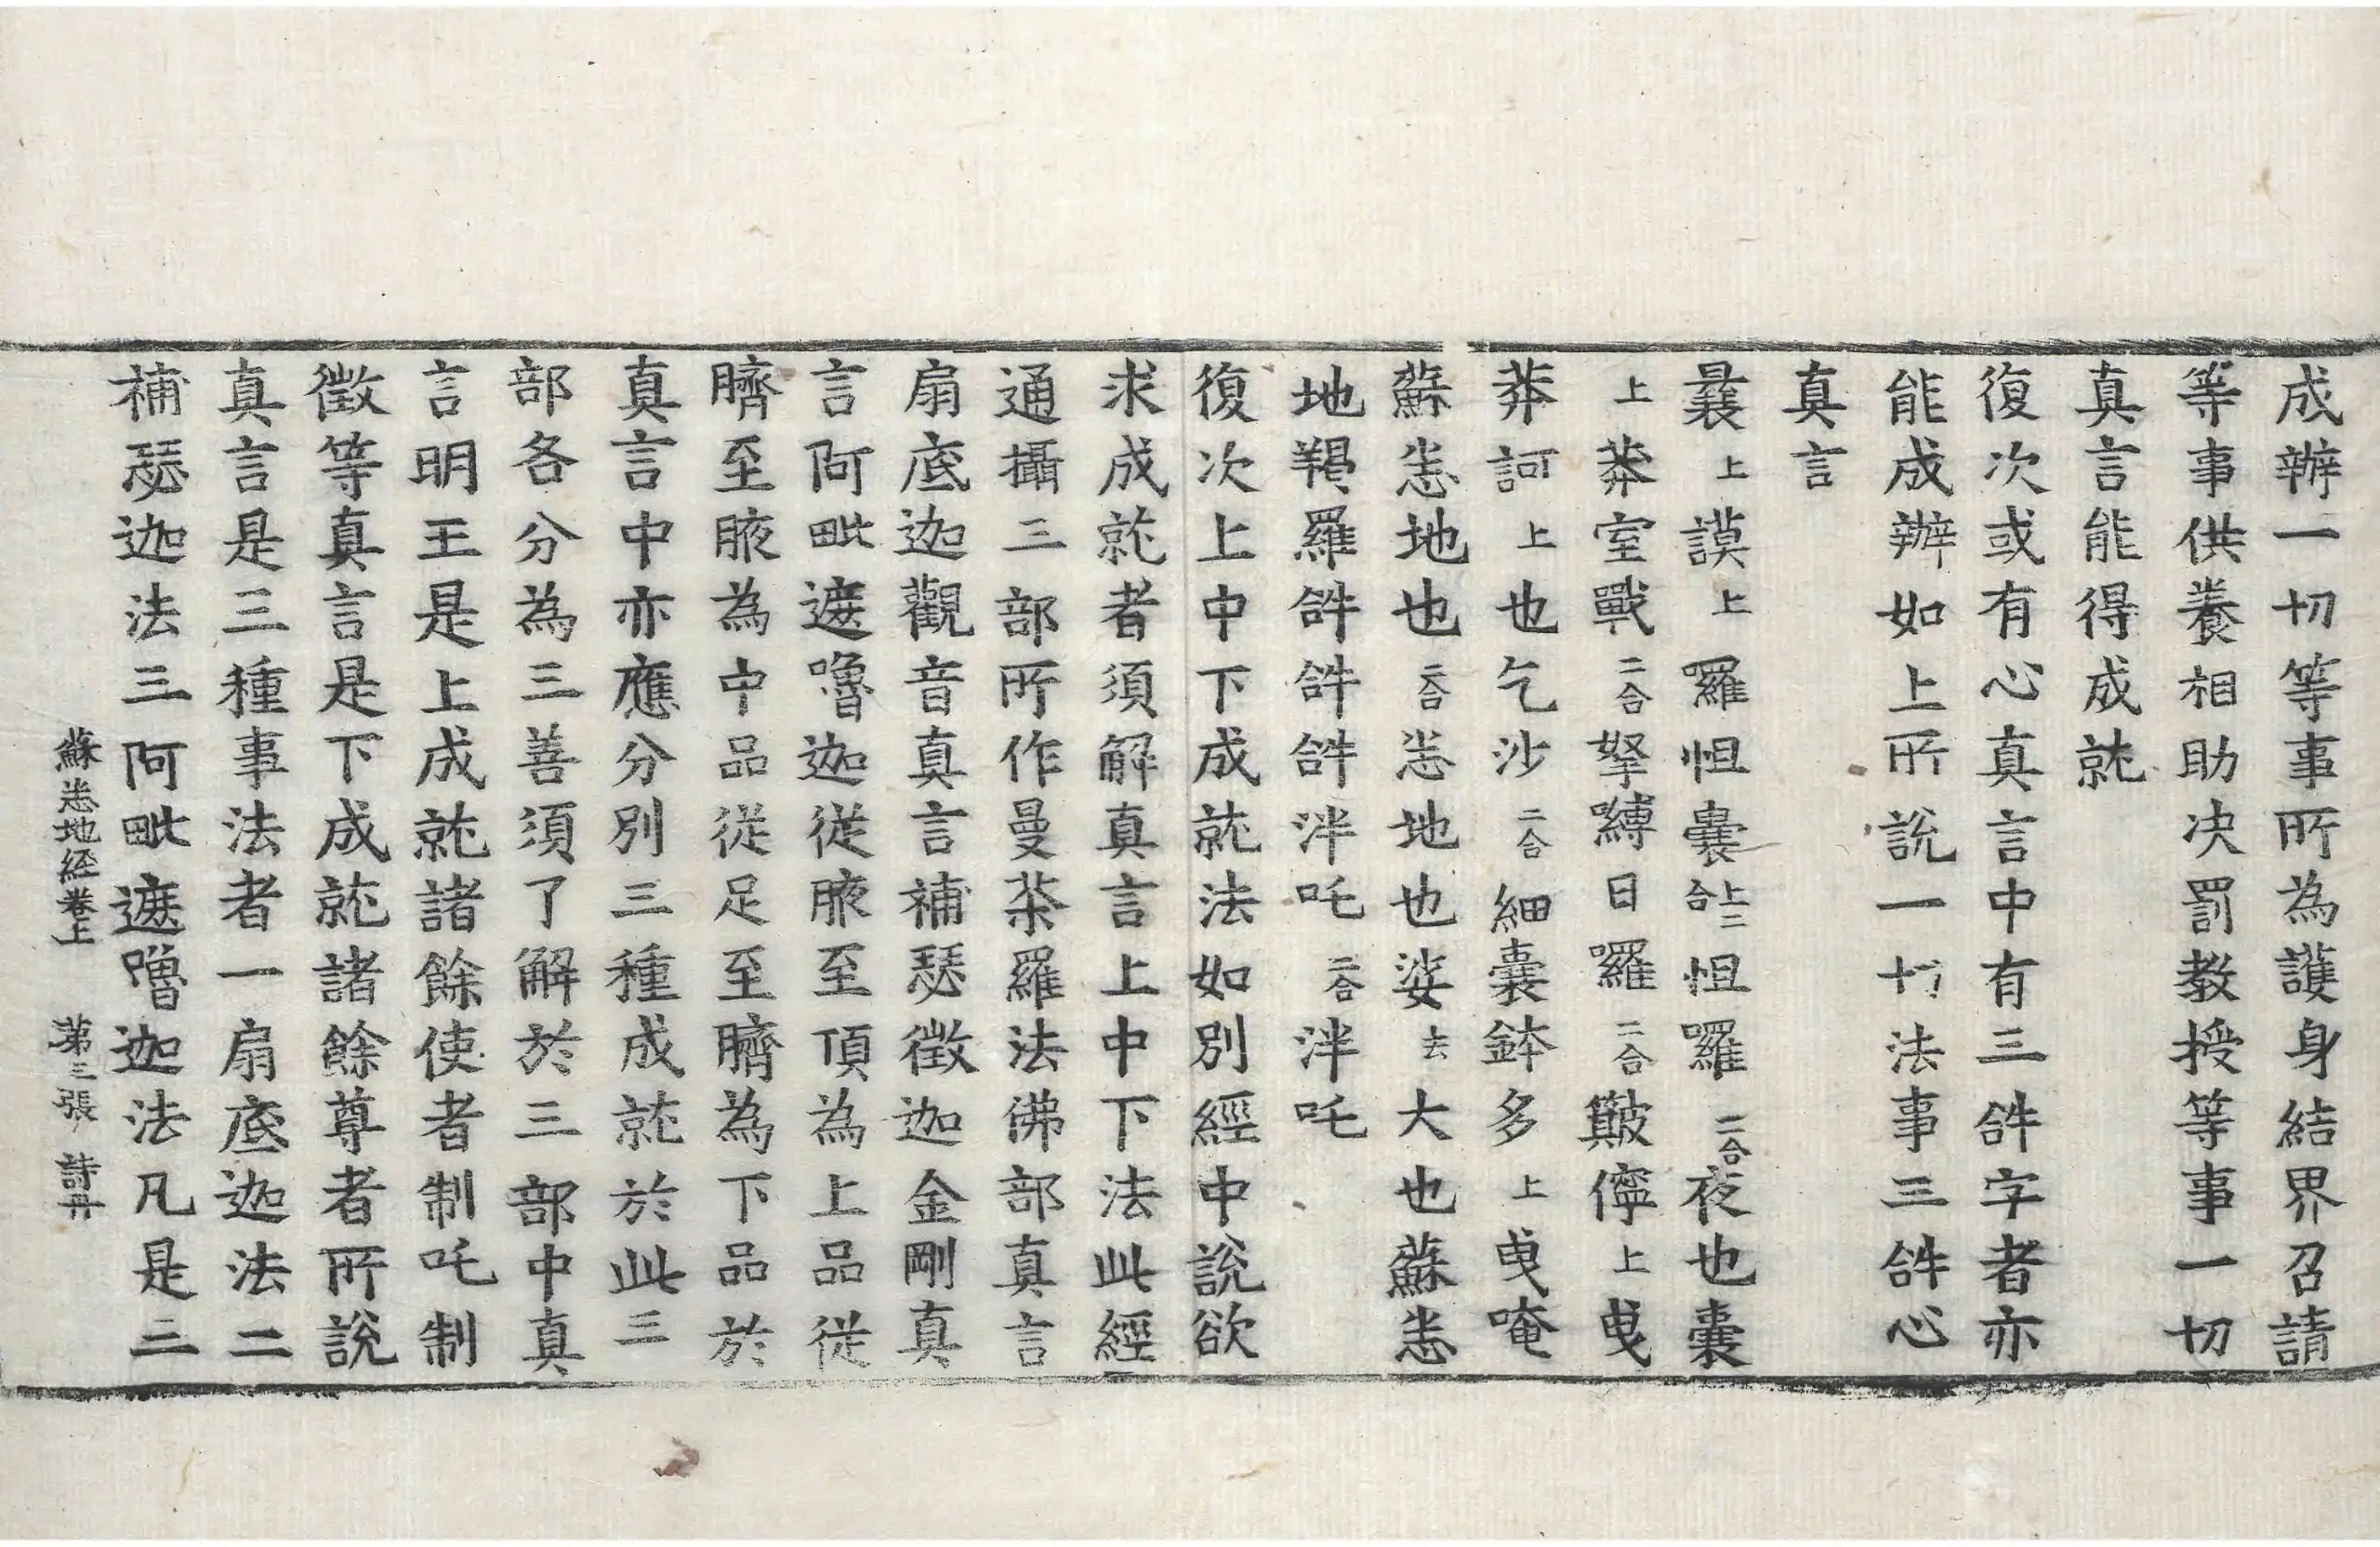 成辦一切等事所為護身結界召請
等事供養相助决罰教授等事一切
真言能得成就
復次或有心真言中有三𤙖字者亦
能成辦如上所說一切法事三𤙖心
真言
曩上謨上囉怛曩上二合怛囉二合夜也囊
上莽室戰二合拏嚩日囉二合簸儜上曳
莽訶上也乞沙二合細囊鉢多上曳唵
蘇悉地也二合悉地也娑去大也蘇悉
地羯羅𤙖𤙖𤙖泮吒二合泮吒
復次上中下成就法如別經中說欲
求成就者須解真言上中下法此經
通攝三部所作曼茶羅法佛部真言
扇底迦觀音真言補瑟徵迦金剛真
言阿毗遮嚕迦從腋至頂為上品從
臍至腋為中品從足至臍為下品於
真言中亦應分別三種成就於此三
部各分為三善須了解於三部中真
言明王是上成就諸餘使者制吒制
徵等真言是下成就諸餘尊者所說
真言是三種事法者一扇底迦法二
補瑟迦法三阿毗遮嚕迦法凡是三
蘇悉地経卷上 第三張 詩冊